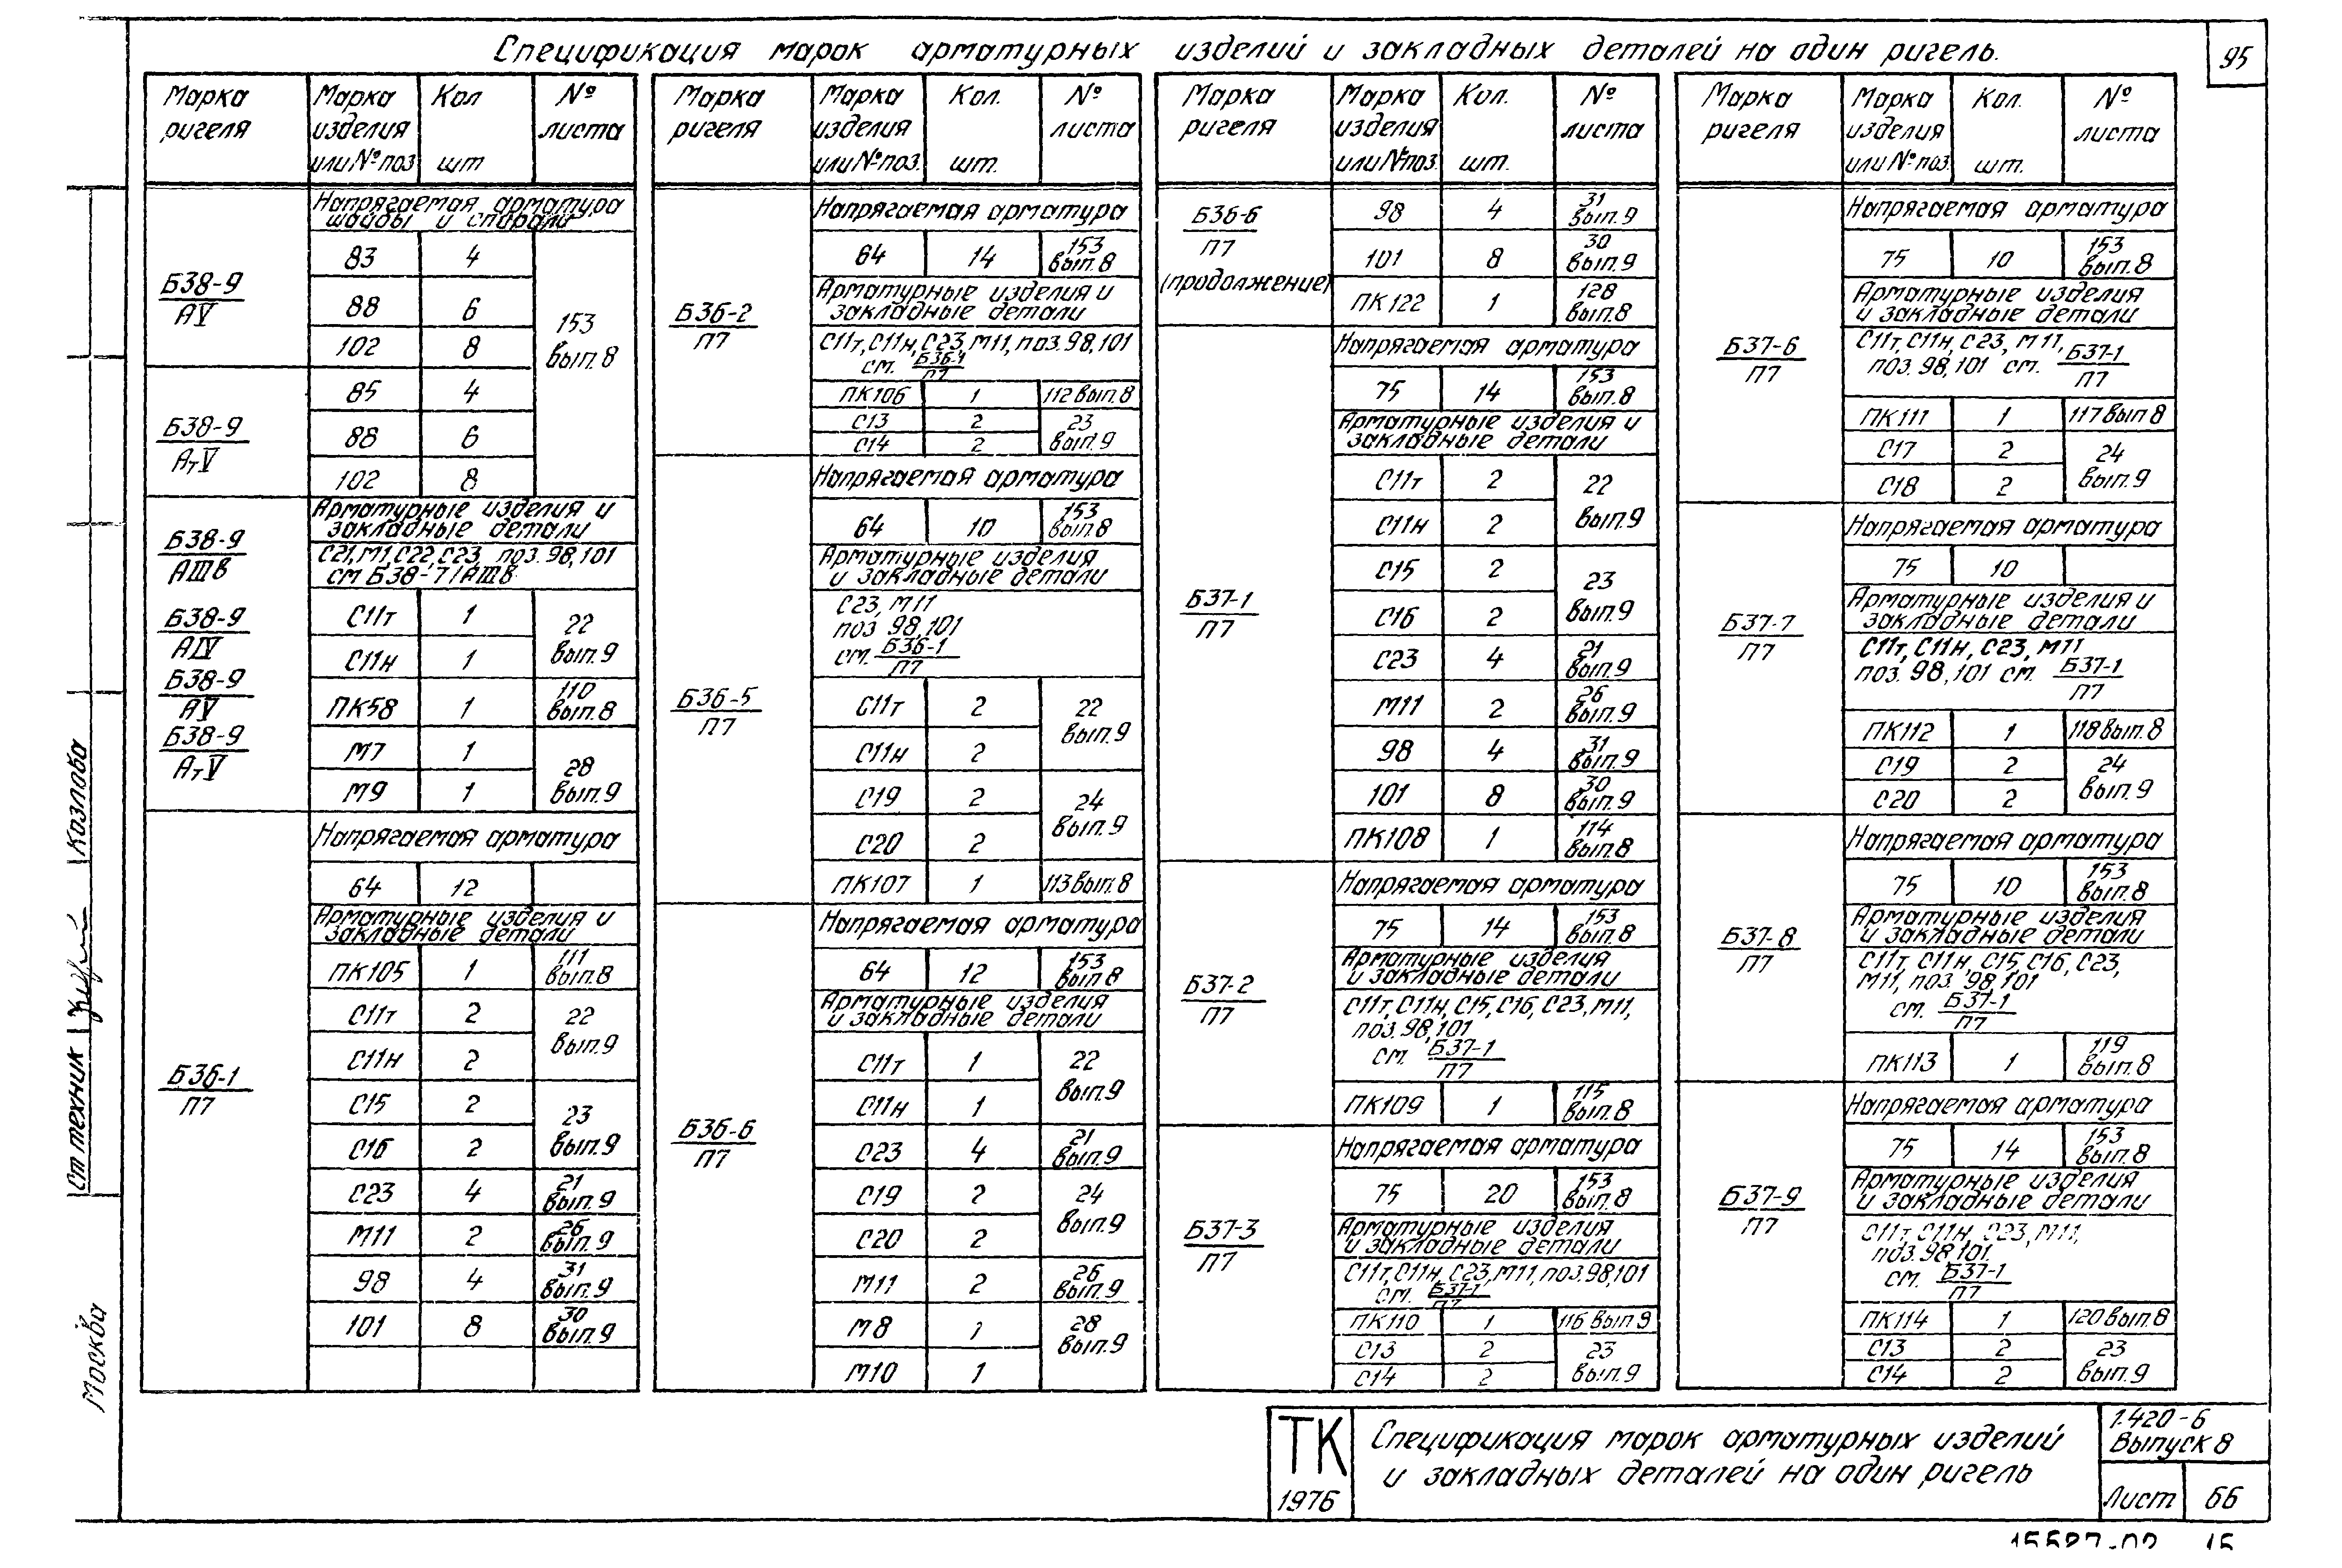 95
Спецификация марок арматурных изделий и закладных деталей на один ригель.
Марка ригеля | Марка изделия или № поз | Кол шт | № листа
Напрягаемая арматура шайбы и спирали
Б38-9/АV
83 | 4 | 153 вып.8
88 | 6
102 | 8
Б38-9/АтV
85 | 4
88 | 6
102 | 8
Б38-9/АIIIв
Б38-9/АIV
Б38-9/АV
Б38-9/АтV
Арматурные изделия и
закладные детали
С21, М1, С22, С23, поз. 98, 101
см Б38-7/АIIIв
С11т | 1 | 22 вып.9
С11н | 1
ПК58 | 1 | 110 вып.8
М7 | 1 | 28 вып.9
М9 | 1
Б36-1/П7
Напрягаемая арматура
64 | 12
Арматурные изделия и
закладные детали
ПК105 | 1 | 111 вып.8
С11т | 2 | 22 вып.9
С11н | 2
С15 | 2 | 23 вып.9
С16 | 2
С23 | 4 | 21 вып.9
М11 | 2 | 26 вып.9
98 | 4 | 31 вып.9
101 | 8 | 30 вып.9
Марка ригеля | Марка изделия или № поз. | Кол. шт. | № листа
Б36-2/П7
Напрягаемая арматура
64 | 14 | 153 вып.8
Арматурные изделия и
закладные детали
С11т, С11н, С23, М11, поз. 98, 101
см. Б36-1/П7
ПК106 | 1 | 112 вып.8
С13 | 2 | 23 вып.9
С14 | 2
Б36-5/П7
Напрягаемая арматура
64 | 10 | 153 вып.8
Арматурные изделия
и закладные детали
С23, М11
поз 98, 101
см. Б36-1/П7
С11т | 2 | 22 вып.9
С11н | 2
С19 | 2 | 24 вып.9
С20 | 2
ПК107 | 1 | 113 вып.8
Б36-6/П7
Напрягаемая арматура
64 | 12 | 153 вып 8
Арматурные изделия
и закладные детали
С11т | 1 | 22 вып.9
С11н | 1
С23 | 4 | 21 вып.9
С19 | 2 | 24 вып.9
С20 | 2
М11 | 2 | 26 вып.9
М8 | 1 | 28 вып.9
М10 | 1
Марка ригеля | Марка изделия или № поз. | Кол. шт. | № листа
Б36-6/П7
(продолжение)
98 | 4 | 31 вып.9
101 | 8 | 30 вып.9
ПК122 | 1 | 128 вып.8
Б37-1/П7
Напрягаемая арматура
75 | 14 | 153 вып.8
Арматурные изделия и
закладные детали
С11т | 2 | 22 вып.9
С11н | 2
С15 | 2 | 23 вып.9
С16 | 2
С23 | 4 | 21 вып.9
М11 | 2 | 26 вып.9
98 | 4 | 31 вып.9
101 | 8 | 30 вып.9
ПК108 | 1 | 114 вып.8
Б37-2/П7
Напрягаемая арматура
75 | 14 | 153 вып.8
Арматурные изделия
и закладные детали
С11т, С11н, С15, С16, С23, М11,
поз. 98, 101
см. Б37-1/П7
ПК109 | 1 | 115 вып.8
Б37-3/П7
Напрягаемая арматура
75 | 20 | 153 вып.8
Арматурные изделия
и закладные детали
С11т, С11н, С23, М11, поз. 98, 101
см. Б37-1/П7
ПК110 | 1 | 116 вып 8
С13 | 2 | 23 вып.9
С14 | 2
Марка ригеля | Марка изделия или № поз. | Кол. шт. | № листа
Б37-6/П7
Напрягаемая арматура
75 | 10 | 153 вып.8
Арматурные изделия
и закладные детали
С11т, С11н, С23, М11,
поз. 98, 101 см. Б37-1/П7
ПК111 | 1 | 117 вып 8
С17 | 2 | 24 вып.9
С18 | 2
Б37-7/П7
Напрягаемая арматура
75 | 10
Арматурные изделия и
закладные детали
С11т, С11н, С23, М11
поз. 98, 101 см. Б37-1/П7
ПК112 | 1 | 118 вып.8
С19 | 2 | 24 вып.9
С20 | 2
Б37-8/П7
Напрягаемая арматура
75 | 10 | 153 вып.8
Арматурные изделия
и закладные детали
С11т, С11н, С15, С16, С23,
М11, поз. 98, 101
см. Б37-1/П7
ПК113 | 1 | 119 вып.8
Б37-9/П7
Напрягаемая арматура
75 | 14 | 153 вып.8
Арматурные изделия
и закладные детали
С11т, С11н, С23, М11,
поз. 98, 101.
см. Б37-1/П7
ПК114 | 1 | 120 вып.8
С13 | 2 | 23 вып.9
С14 | 2
Ст техник Козлова
Москва
ТК
1976
Спецификация марок арматурных изделий
и закладных деталей на один ригель
1.420-6
Выпуск 8
Лист 66